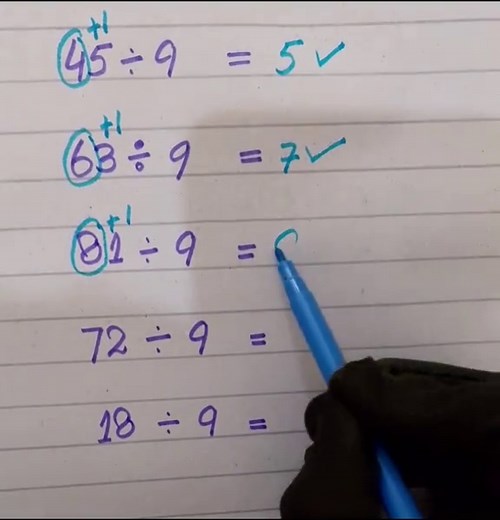 +1
45 ÷ 9 = 5 ✓
+1
63 ÷ 9 = 7 ✓
+1
81 ÷ 9 =
72 ÷ 9 =
18 ÷ 9 =